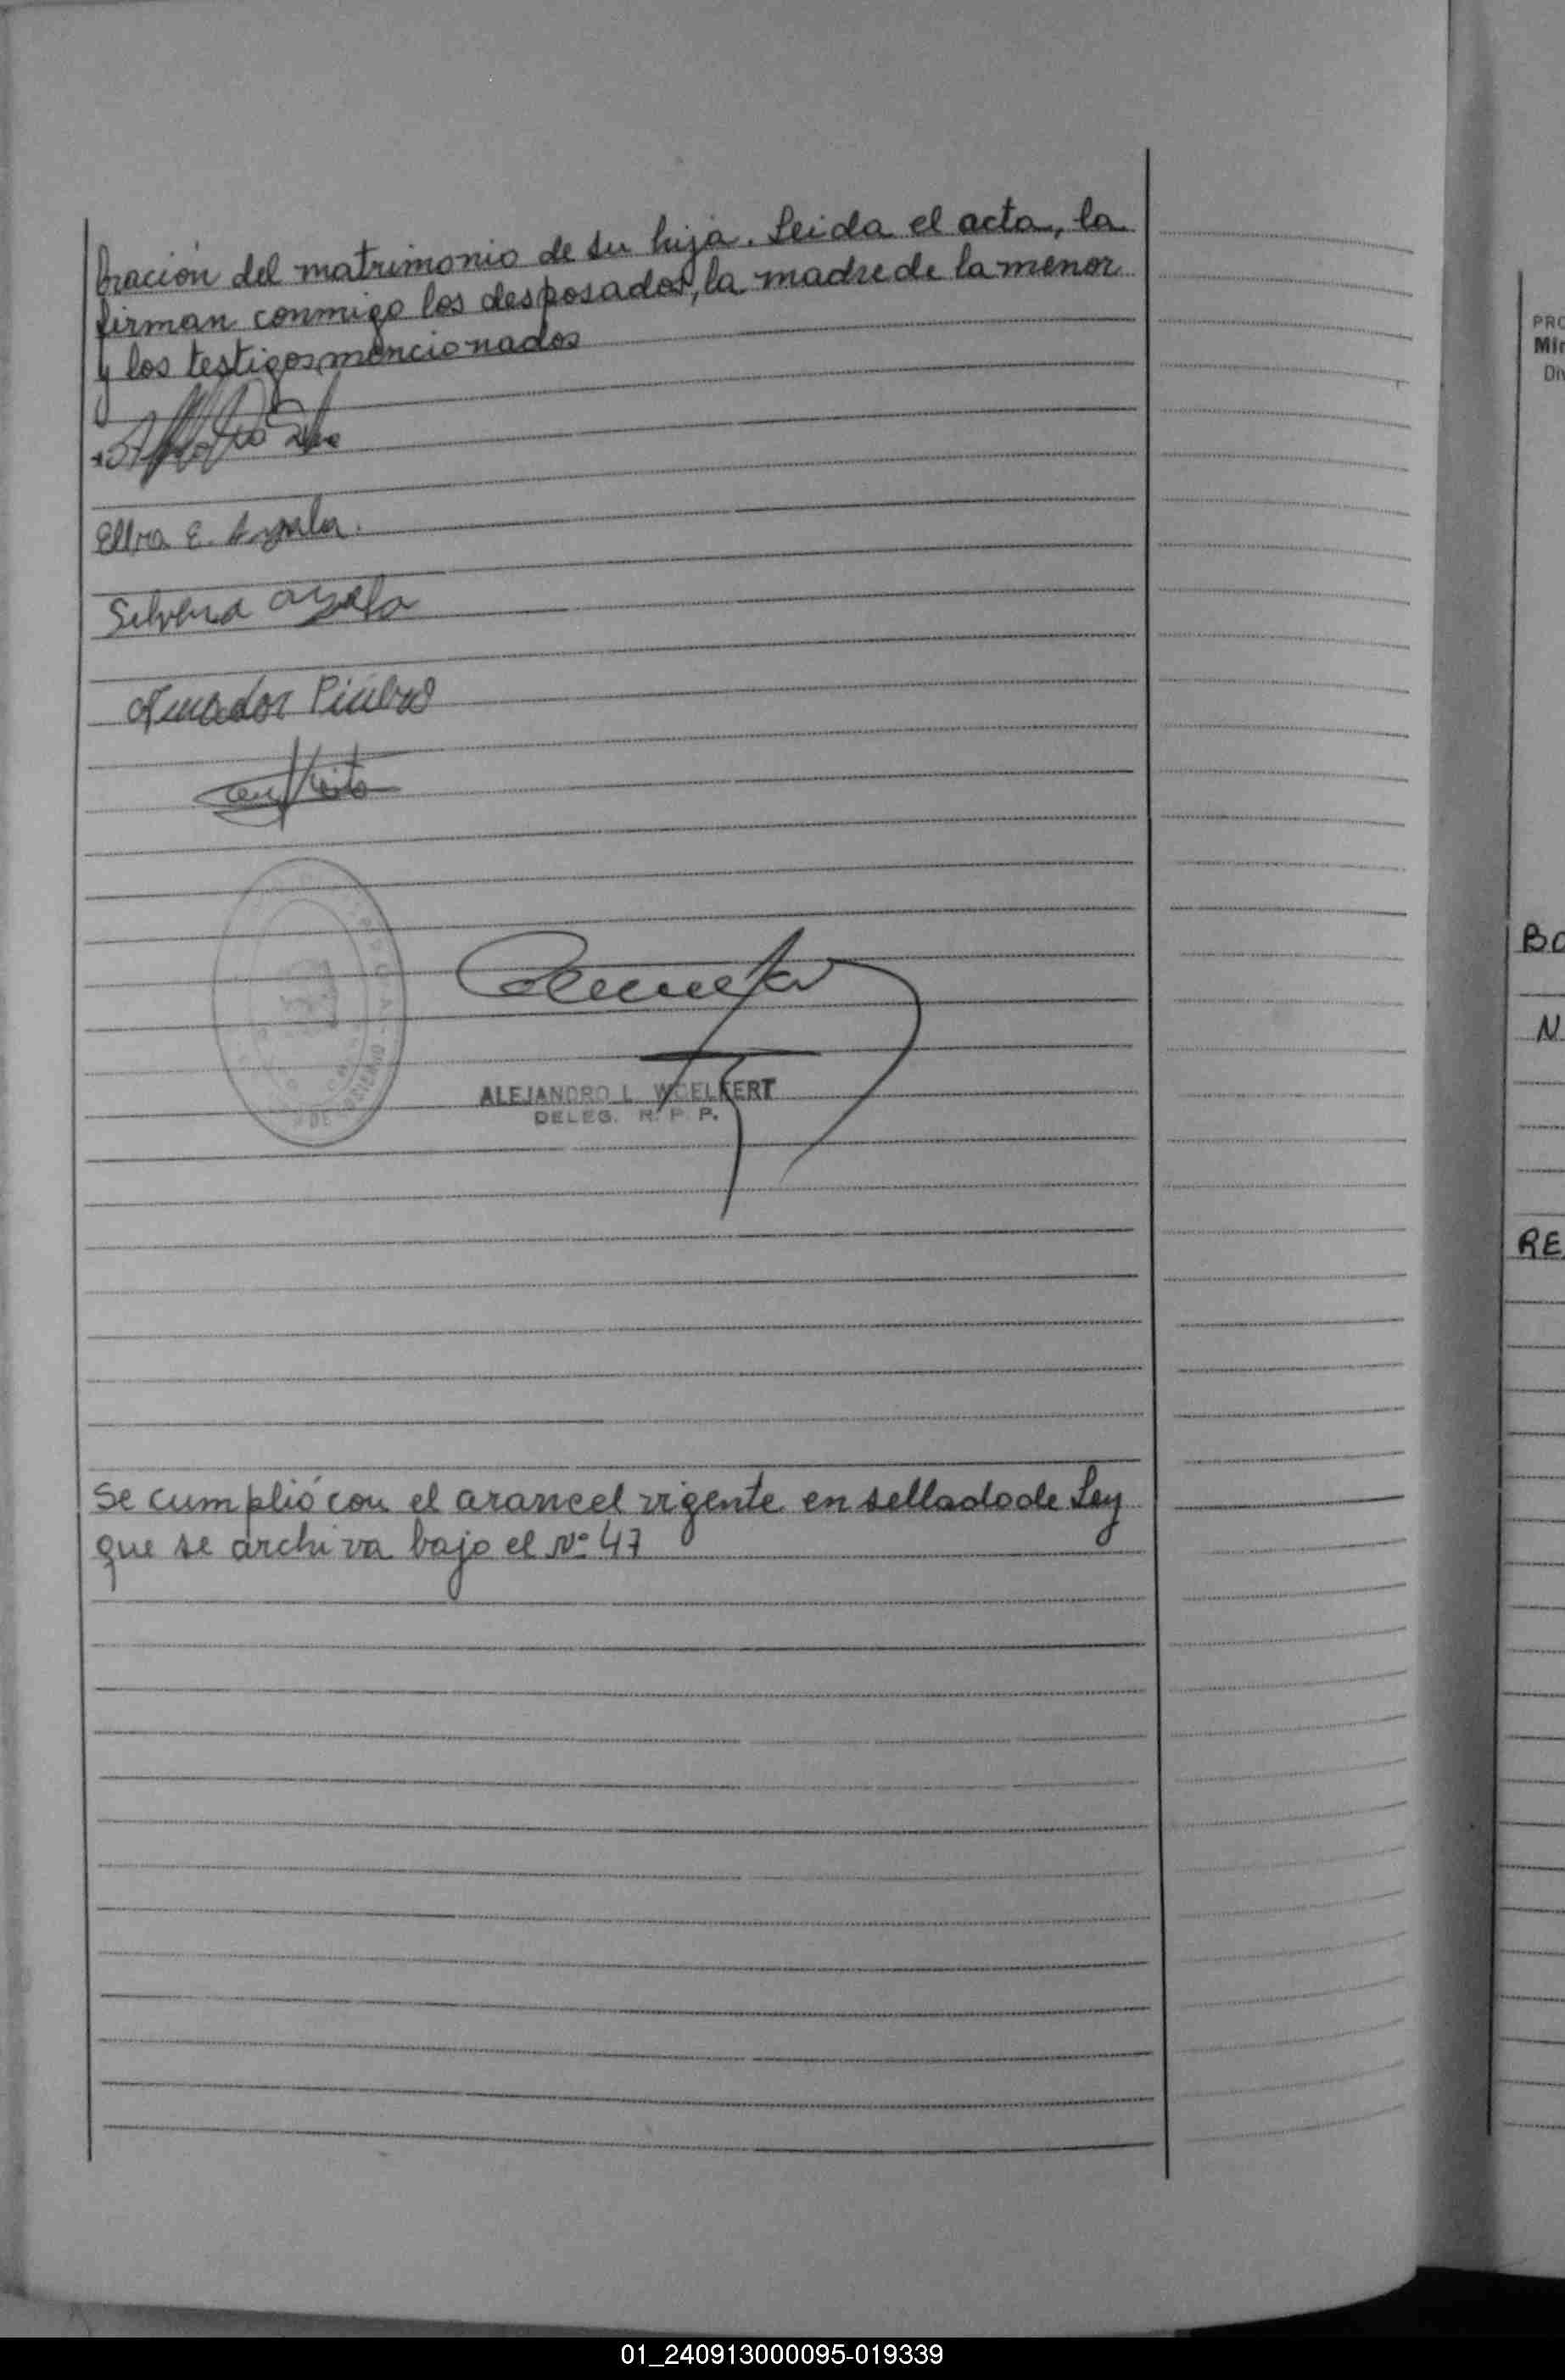 bración del matrimonio de su hija. Leida el acta, la
firman conmigo los desposados, la madre de la menor
y los testigos mencionados
Elba E. Ayala.
Silveria Ayala
Amador Piñero
ALEJANDRO L. WOELFERT
DELEG. R. P. P.
Se cumplió con el arancel vigente en sellado de Ley
que se archiva bajo el Nº 47
PRO
Min
Di
BO
N
RE
01_240913000095-019339